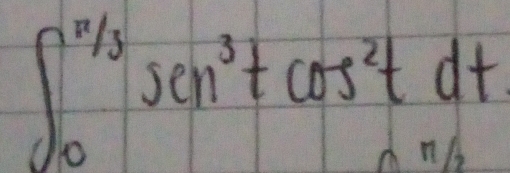 ∫₀^{π/3} sen³t cos²t dt.
π/2